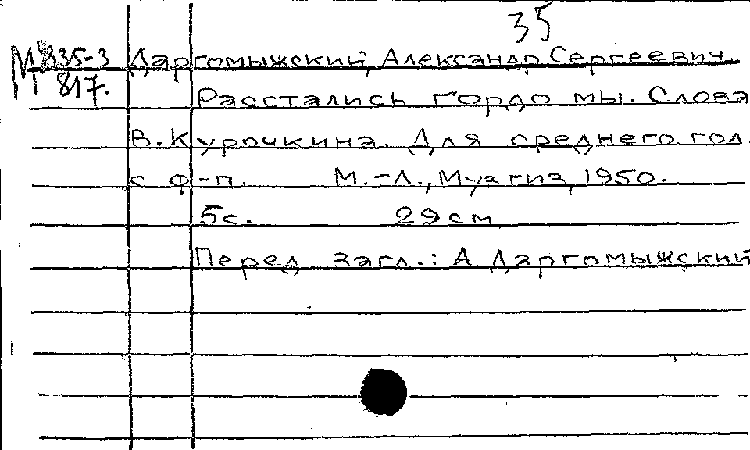 35
М 835-3 Даргомыжский, Александр Сергеевич.
МГ 817. Расстались гордо мы. Слова
В. Курочкина. Для среднего гол.
с ф-п. М.-Л., Музгиз, 1950.
5с. 29см
Перед загл.: А Даргомыжский